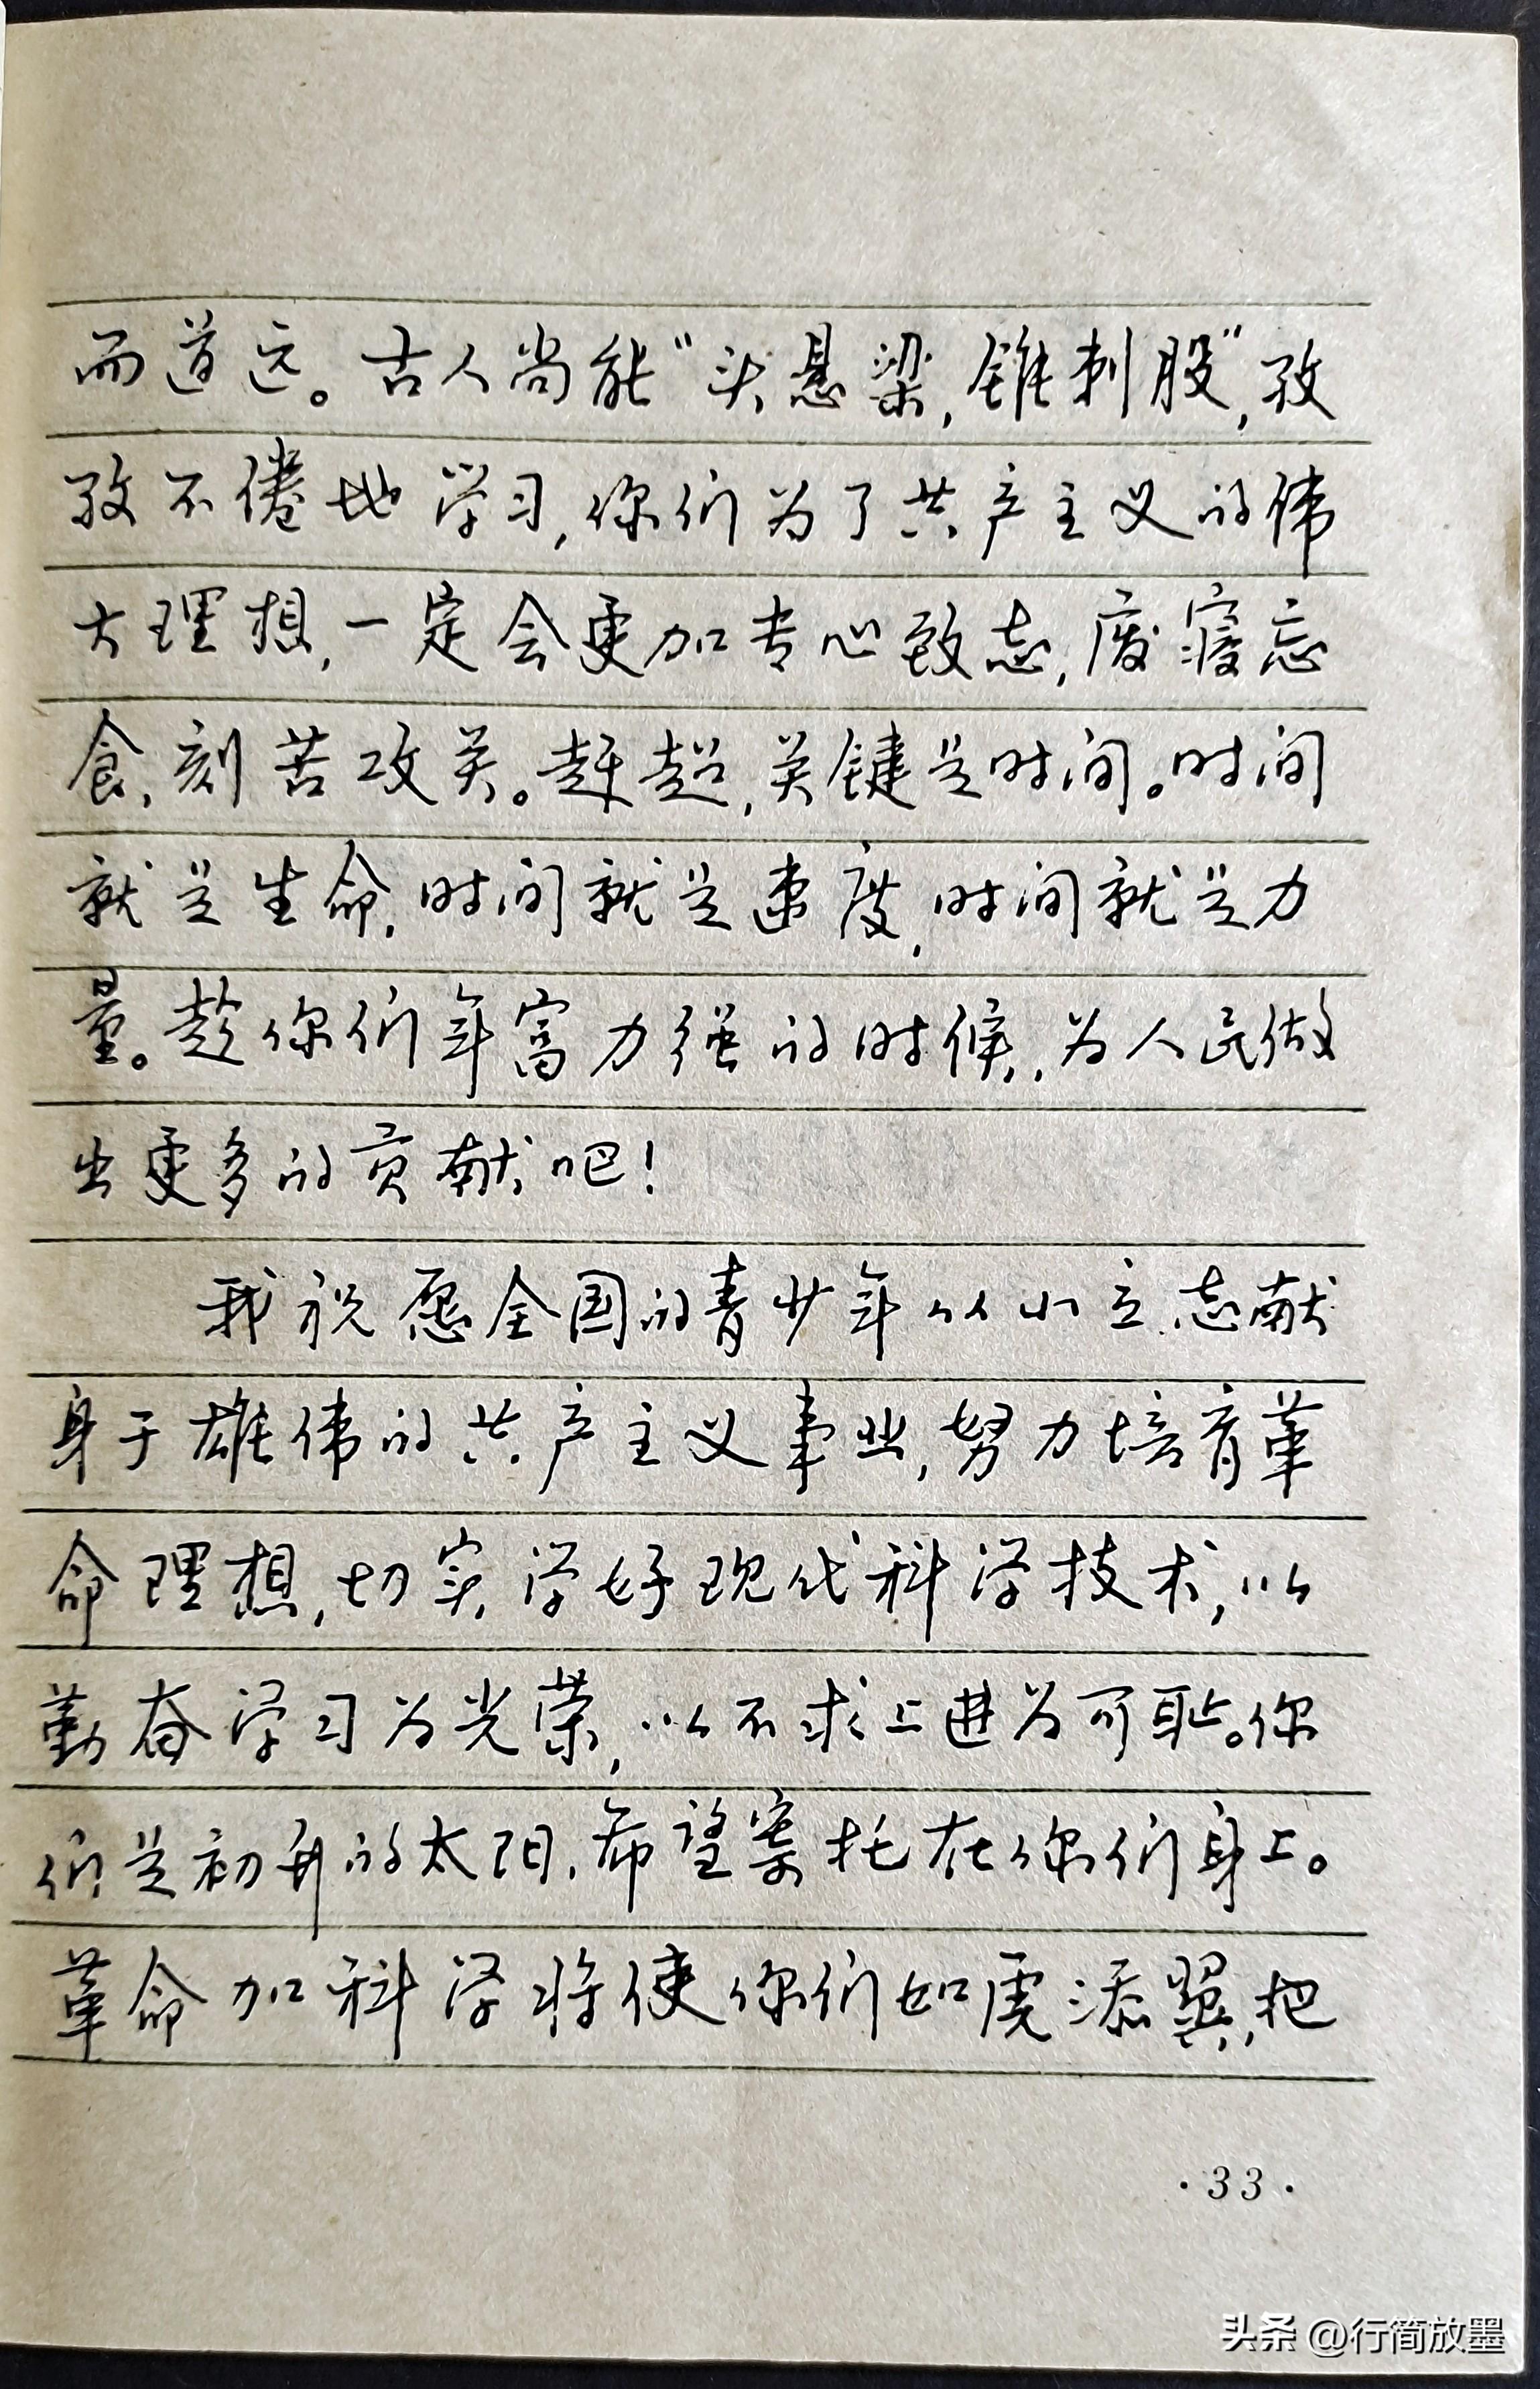 而道远。古人尚能“头悬梁，锥刺股”，孜
孜不倦地学习，你们为了共产主义的伟
大理想，一定会更加专心致志，废寝忘
食，刻苦攻关。赶超，关键是时间。时间
就是生命，时间就是速度，时间就是力
量。趁你们年富力强的时候，为人民做
出更多的贡献吧！
我祝愿全国的青少年从小立志献
身于雄伟的共产主义事业，努力培育革
命理想，切实学好现代科学技术，以
勤奋学习为光荣，以不求上进为可耻。你
们是初升的太阳，希望寄托在你们身上。
革命加科学将使你们如虎添翼，把
·33·
头条 @行简放墨